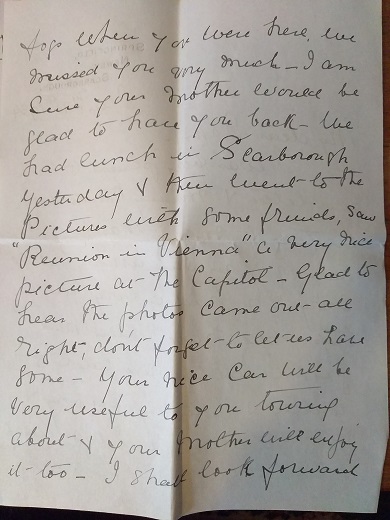 Jogs when you were here, we
missed you very much - I am
sure your Mother would be
glad to have you back - We
had lunch in Scarborough
yesterday & then went to the
Pictures with some friends, saw
"Reunion in Vienna" a very nice
picture at the Capitol - Glad to
hear the photos came out all
right, don't forget to let us have
some - Your nice Car will be
very useful to you touring
about & your Mother will enjoy
it too - I shall look forward